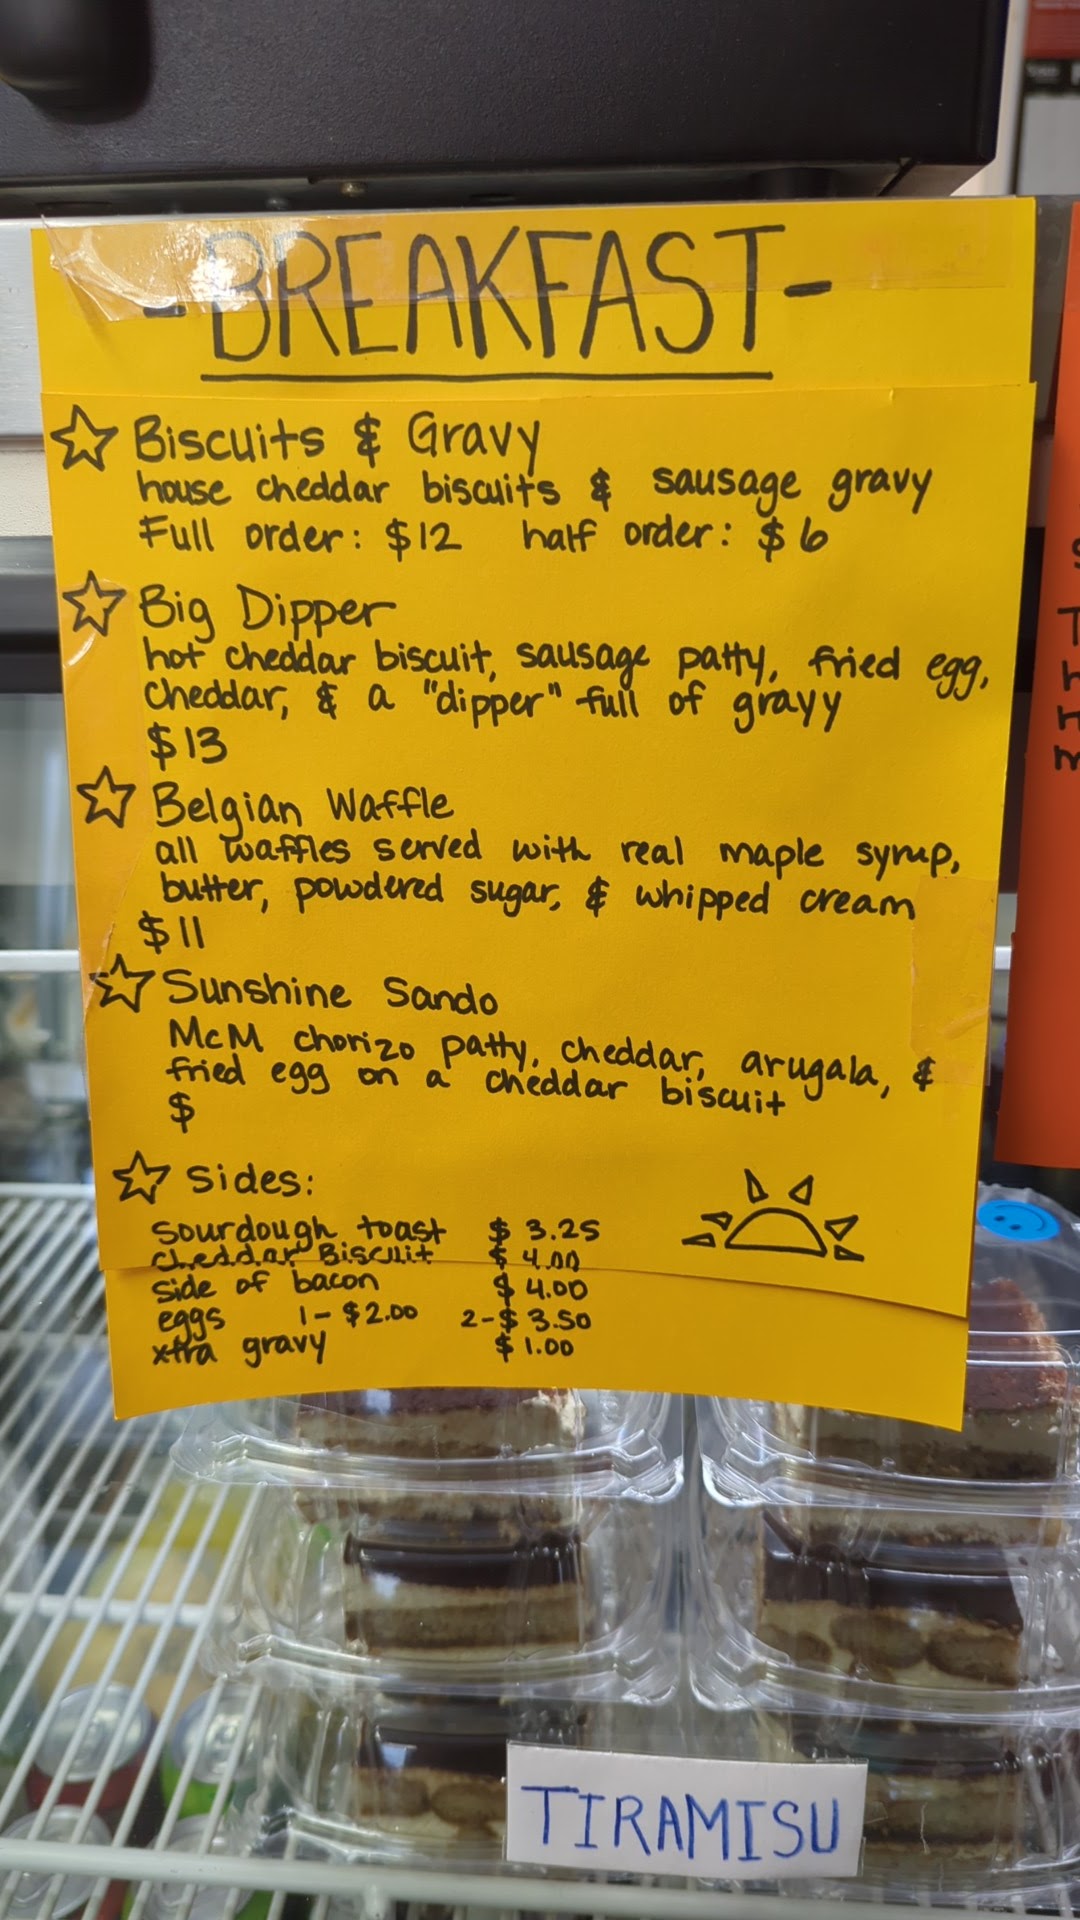 -BREAKFAST-
Biscuits & Gravy
house cheddar biscuits & sausage gravy
Full order: $12 half order: $6
Big Dipper
hot cheddar biscuit, sausage patty, fried egg,
cheddar, & a "dipper" full of gravy
$13
Belgian Waffle
all waffles served with real maple syrup,
butter, powdered sugar, & whipped cream
$11
Sunshine Sando
McM chorizo patty, cheddar, arugala, &
fried egg on a cheddar biscuit
$
Sides:
sourdough toast $ 3.25
cheddar Biscuit $ 4.00
side of bacon $ 4.00
eggs 1- $2.00 2-$ 3.50
xtra gravy $ 1.00
TIRAMISU